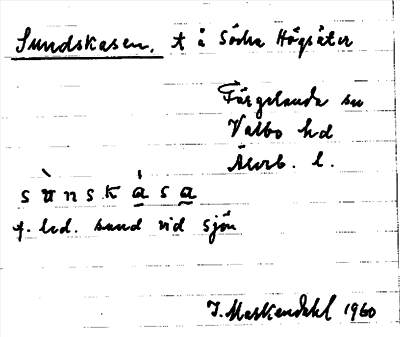 Sundskasen, t å Södra Högsäter
Färgelanda sn
Valbo hd
Älvsb. l.
s ù n s k á s a
f. led. sund vid sjön
J. Markendahl 1960